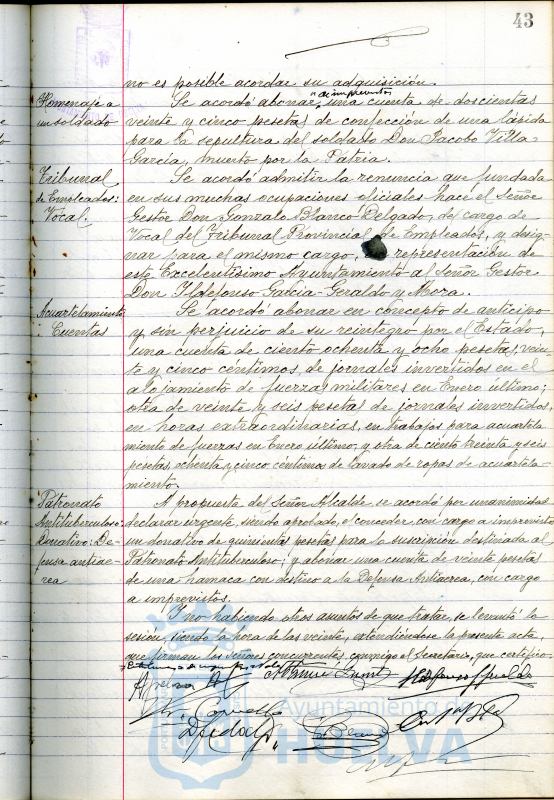 43
no es posible acordar su adquisición.
Homenaje a
un soldado
de imprevistos
Se acordó abonar una cuenta de doscientas
veinte y cinco pesetas de confección de una lápida
para la sepultura del soldado Don Jacobo Villa-
García, muerto por la Patria.
Tribunal
de Empleados:
Vocal.
Se acordó admitir la renuncia que fundada
en sus muchas ocupaciones oficiales hace el Señor
Gestor Don Gonzalo Blanco Delgado, del cargo de
Vocal del Tribunal Provincial de Empleados, y desig-
nar para el mismo cargo, representación de
este Excelentísimo Ayuntamiento al Señor Gestor
Don Ildefonso García-Geraldo y Mora.
Acuartelamiento
: Cuentas
Se acordó abonar en concepto de anticipo
y sin perjuicio de su reintegro por el Estado,
una cuenta de ciento ochenta y ocho pesetas, vein-
te y cinco céntimos, de jornales invertidos en el
alojamiento de fuerzas militares en Enero último;
otra de veinte y seis pesetas de jornales invertidos,
en horas extraordinarias, en trabajos para acuartela
miento de fuerzas en Enero último, y otra de ciento treinta y seis
pesetas, ochenta y cinco céntimos de lavado de ropas de acuartela-
miento.
Patronato
Antituberculoso:
Donativo: De-
fensa antiaé-
rea
A propuesta del Señor Alcalde se acordó por unanimidad
declarar urgente, siendo aprobado, el conceder, con cargo a imprevistos
un donativo de quinientas pesetas para la suscrición destinada al
Patronato Antituberculoso; y abonar una cuenta de veinte pesetas
de una hamaca con destino a la Defensa Antiaérea, con cargo
a imprevistos.
Y no habiendo otros asuntos de que tratar, se levantó la
sesión, siendo la hora de las veinte, extendiéndose la presente acta,
que firman los señores concurrentes, conmigo el Secretario, que certifico.
Ayuntamiento de
HUELVA